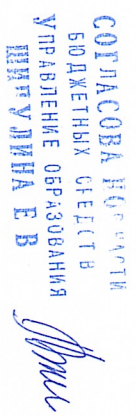 СОГЛАСОВАНО В ЧАСТИ
БЮДЖЕТНЫХ СРЕДСТВ
УПРАВЛЕНИЕ ОБРАЗОВАНИЯ
ШИГУЛИНА Е В